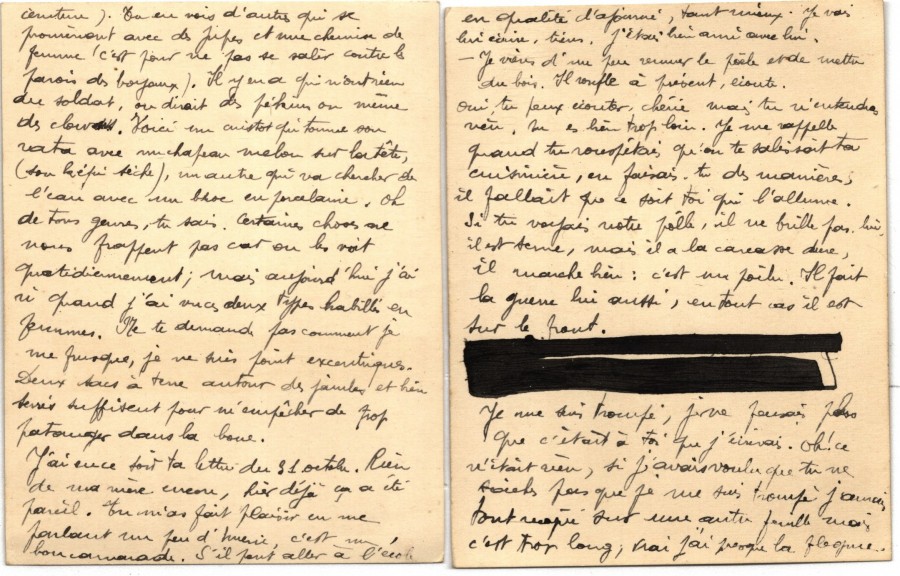 ceinture). Tu en vois d'autres qui se
promènent avec des pipes et une chemise de
femme (c'est pour ne pas se salir contre les
parois des boyaux). Il y en a qui n'ont rien
du soldat, on dirait des pékins ou même
des clowns. Voici un cuistot qui tourne son
rata avec un chapeau melon sur la tête,
(son képi sèche), un autre qui va chercher de
l'eau avec un broc en porcelaine. Oh
de tous genres, tu sais. Certaines choses ne
nous frappent pas car on les voit
quotidiennement; mais aujourd'hui j'ai
ri quand j'ai vu ces deux types habillés en
femmes. Ne te demande pas comment je
me frusque, je ne suis point excentrique.
Deux sacs à terre autour des jambes et bien
serrés suffisent pour m'empêcher de trop
patauger dans la boue.
J'ai eu ce soir ta lettre du 31 octobre. Rien
de ma mère encore, hier déjà ça a été
pareil. Tu m'as fait plaisir en me
parlant un peu d'Huerie, c'est un
bon camarade. S'il peut aller à l'école
en qualité d'ajourné, tant mieux. Je vais
lui écrire, tiens. J'étais bien ami avec lui.
- Je viens d'me peu remuer le poêle et de mettre
du bois. Il ronfle à présent, écoute.
Oui, tu peux écouter, chérie mais tu n'entendras
rien, tu es bien trop loin. Je me rappelle
quand tu rouspétais qu'on te salissait ta
cuisinière, en faisais-tu des manières,
il fallait que ce soit toi qui l'allume.
Si tu voyais notre pôële, il ne brille pas lui,
il est terne, mais il a la carcasse dure,
il marche bien: c'est un poilu. Il fait
la guerre lui aussi, en tout cas il est
sur le front.
Je me suis trompé, je ne pensais plus
que c'était à toi que j'écrivais. Oh! ce
n'était rien, si j'avais voulu que tu ne
saches pas que je me suis trompé j'aurais
tout recopié sur une autre feuille mais
c'est trop long, vrai j'ai presque la flegme..